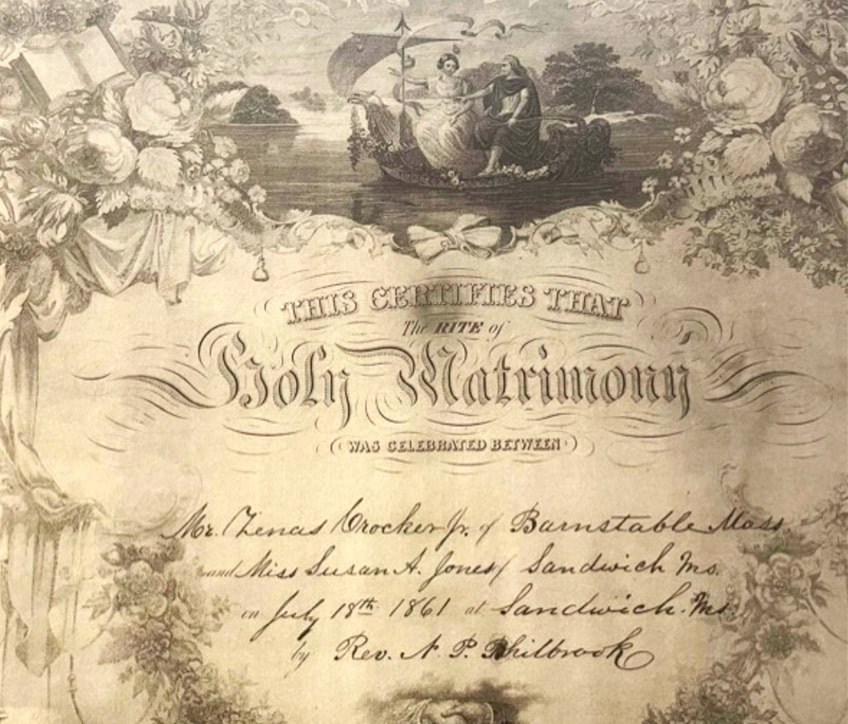 THIS CERTIFIES THAT
The RITE of
Holy Matrimony
WAS CELEBRATED BETWEEN
Mr. Zenas Crocker Jr. of Barnstable Mass
and Miss Susan A. Jones of Sandwich Ms.
on July 18th 1861 at Sandwich. Ms
by Rev. N. P. Philbrook